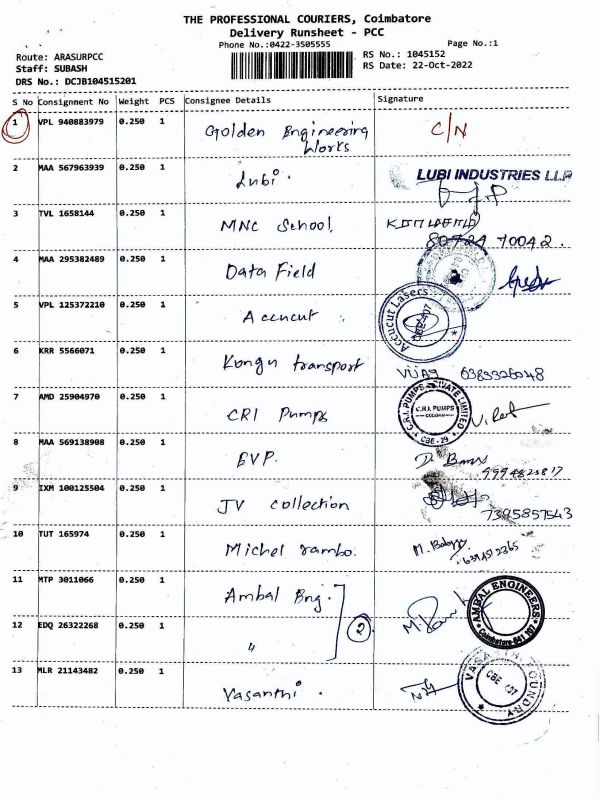 THE PROFESSIONAL COURIERS, Coimbatore
Delivery Runsheet - PCC
Phone No.:0422-3505555
Page No.:1
Route: ARASURPCC
Staff: SUBASH
DRS No.: DCJB104515201
RS No.: 1045152
RS Date: 22-Oct-2022
S No Consignment No Weight PCS Consignee Details Signature
1 VPL 940883979 0.250 1 Golden Engineering C/N
Works
2 MAA 567963939 0.250 1 Lubi. LUBI INDUSTRIES LLP
3 TVL 1658144 0.250 1 MNC School,
80724 70042.
4 MAA 295382489 0.250 1 Data Field
5 VPL 125372210 0.250 1 Accucut Accucut Lasers CBE-407
6 KRR 5566071 0.250 1 Kongu transport VIJAY
7 AMD 25904970 0.250 1 CRI Pumps C.R.I. PUMPS PRIVATE LIMITED C.R.I. PUMPS CBE - 29
8 MAA 569138908 0.250 1 BVP.
9 IXM 100125504 0.250 1 JV collection
7395857543
10 TUT 165974 0.250 1 Michel rambo.
11 MTP 3011066 0.250 1 Ambal Eng. AMBAL ENGINEERS Coimbatore-641 407
12 EDQ 26322268 0.250 1 " 2
13 MLR 21143482 0.250 1 Vasanthi. VASANTHI FOUNDRY CBE - 407